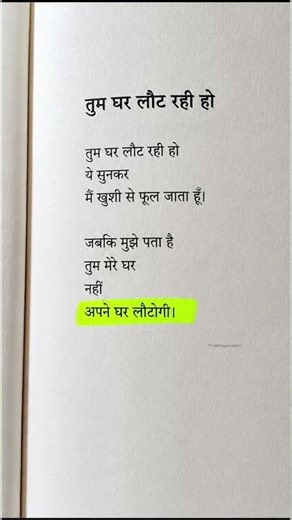 तुम घर लौट रही हो
तुम घर लौट रही हो
ये सुनकर
मैं खुशी से फूल जाता हूँ।
जबकि मुझे पता है
तुम मेरे घर
नहीं
अपने घर लौटोगी।